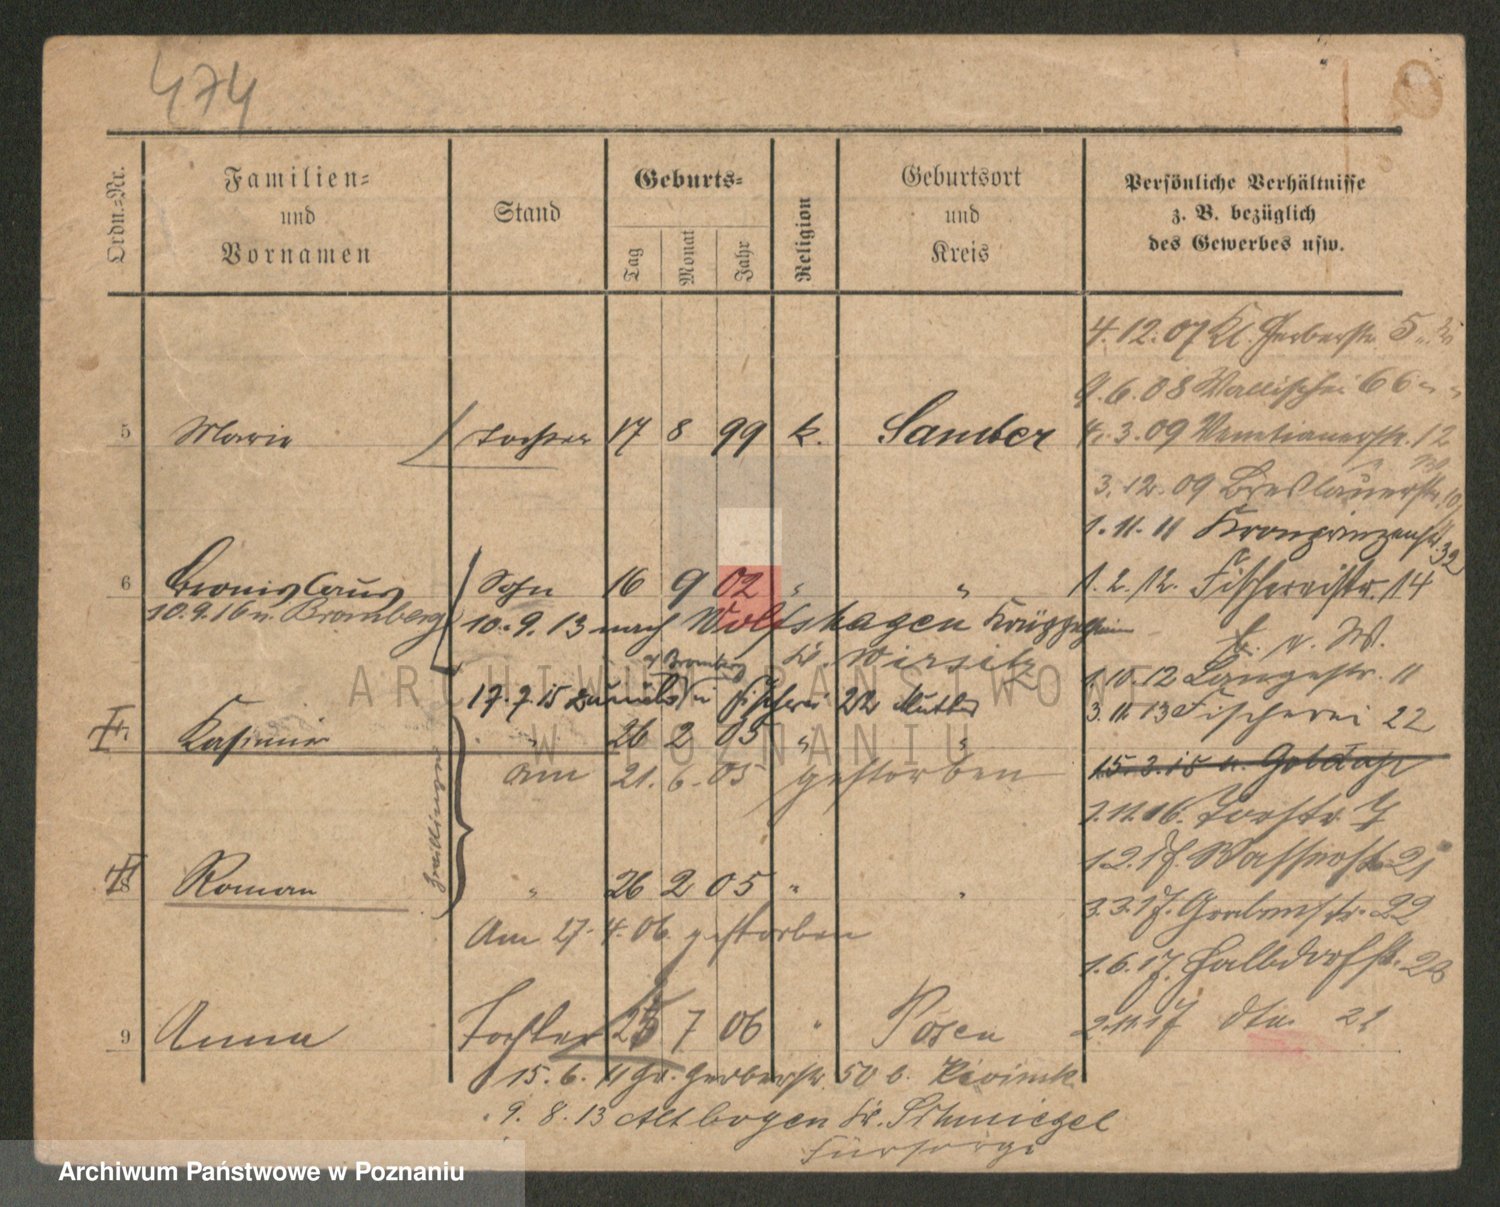 474
Ordn.-Nr.
Familien-
und
Vornamen
Stand
Geburts-
Tag
Monat
Jahr
Religion
Geburtsort
und
Kreis
Persönliche Verhältnisse
z. B. bezüglich
des Gewerbes usw.
4.12.07 Kl. Gerberstr. 5
9.6.08 Wallischei 66 " "
5 Marie Tochter 17 8 99 k. Samter
4.3.09 Venetianerstr. 12
3.12.09 Breslauerstr. 10
1.11.11 Kronprinzenstr. 32
6 Bronislaus Sohn 16 9 02 " "
1.2.12. Fischereistr. 14
10.9.16 n. Bromberg
10.9.13 nach Wolfshagen
v. W.
Bromberg Kr. Wirsitz
1.10.12 Langestr. 11
17.7.15 zurück Fischerei 22 Mutter
3.11.13 Fischerei 22
7 Kasimir " 26 2 05 " "
15.3.15
am 21.6.05 gestorben
Zwillinge
1.11.16. Torstr. 7
1.2.17. Wasserstr. 21
8 Roman " 26 2 05 " "
3.3.17. Grabenstr. 22
Am 27.4.06 gestorben
1.6.17. Halbdorfstr. 23
9 Anna Tochter 25 7 06 " Posen
2.11.17 dto. 21
15.6.11 Gr. Gerberstr. 50 b.
9.8.13 Altbogen Kr. Schmiegel
Fürsorge
ARCHIWUM PAŃSTWOWE
W POZNANIU
Archiwum Państwowe w Poznaniu